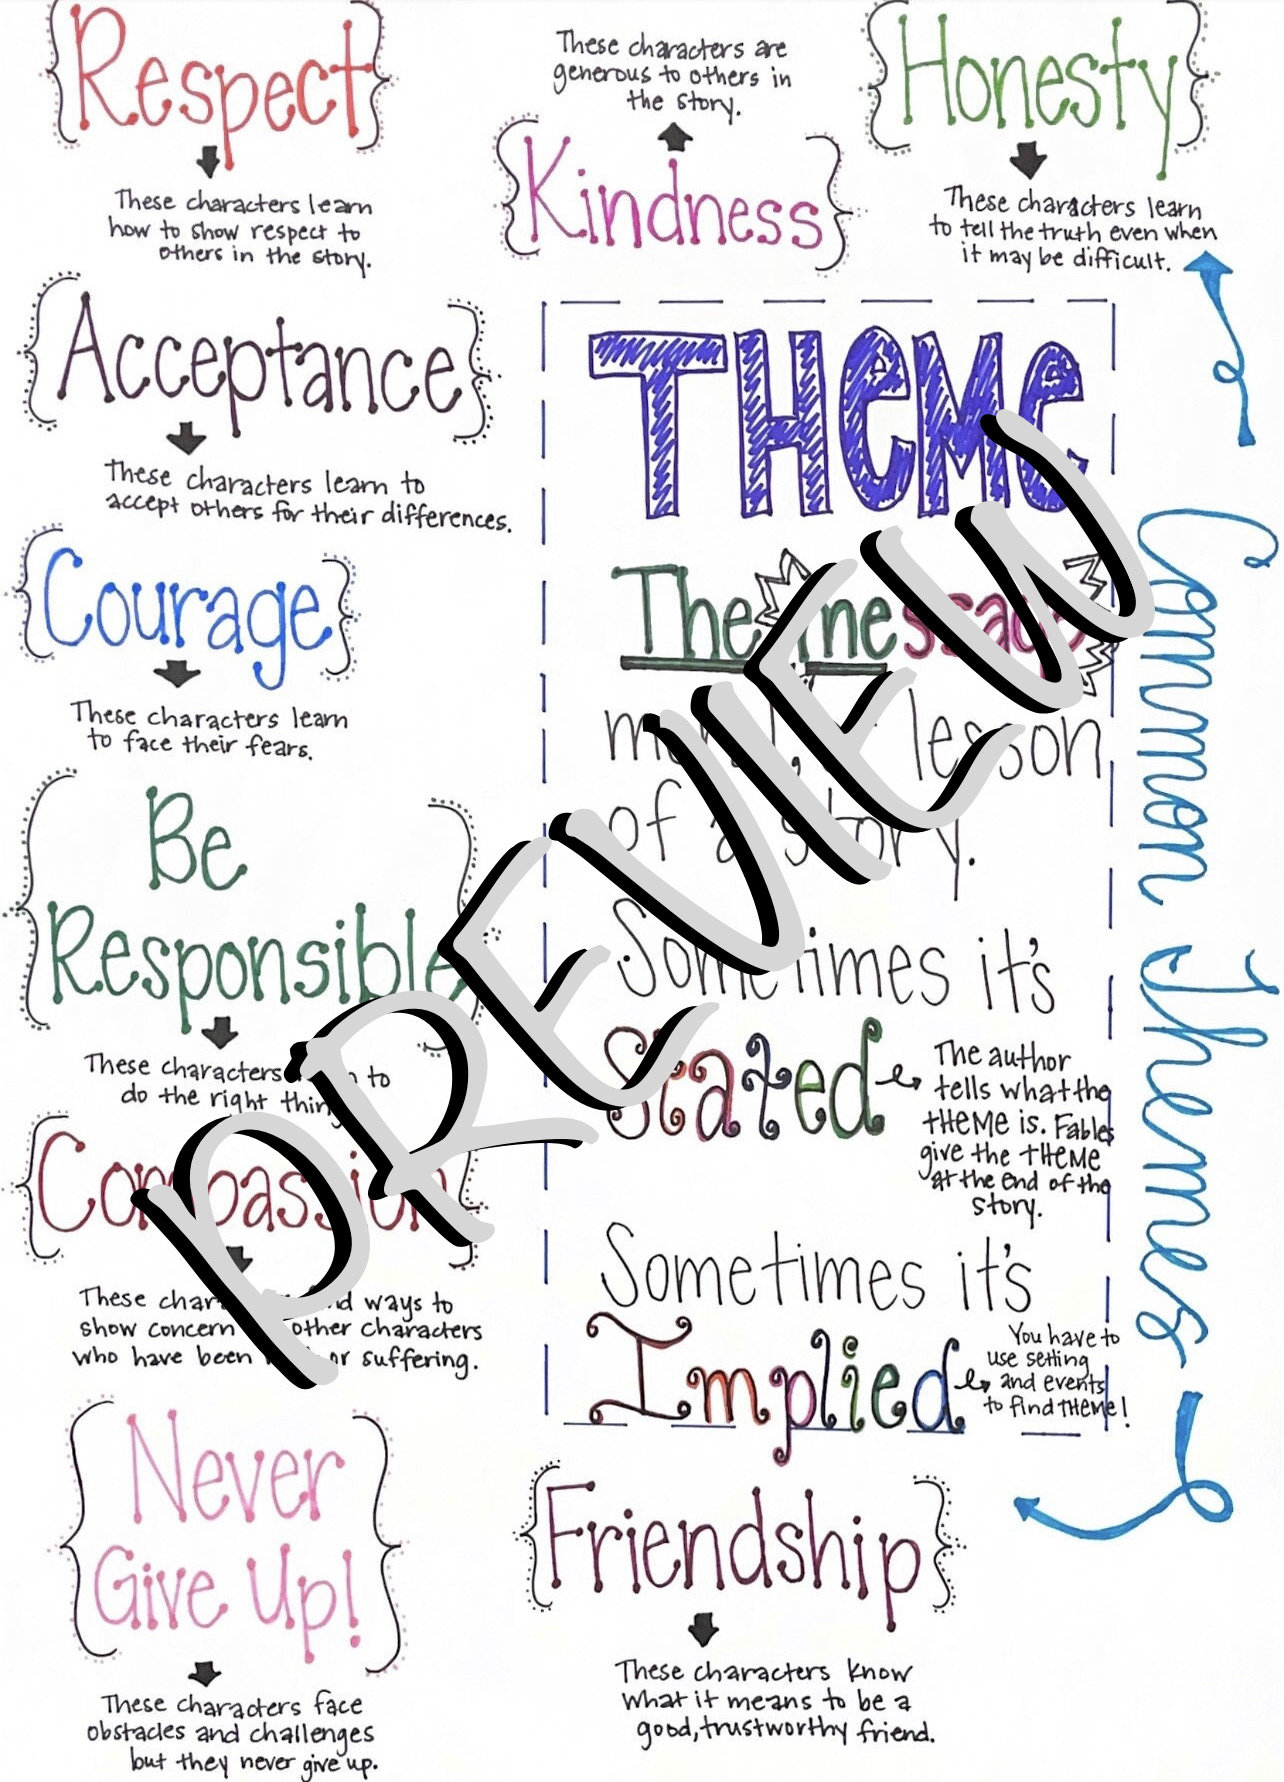 Respect
These characters learn
how to show respect to
others in the story.
These characters are
generous to others in
the story.
Kindness
Honesty
These characters learn
to tell the truth even when
it may be difficult.
Acceptance
These characters learn to
accept others for their differences.
Courage
These characters learn
to face their fears.
Be
Responsible
These characters to
do the right
Compassion
These ways to
show concern other characters
who have been or suffering.
Never
Give Up!
These characters face
obstacles and challenges
but they never give up.
THEME
The message
lesson
of a story.
Sometimes it's
Stated
The author
tells what the
THEME is. Fables
give the THEME
at the end of the
story.
Sometimes it's
Implied
You have to
use setting
and events
to find THEME!
Friendship
These characters know
what it means to be a
good, trustworthy friend.
Common Themes
PREVIEW